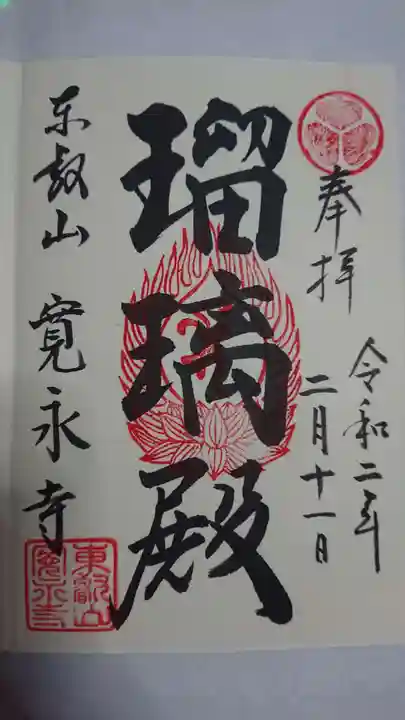 奉拝
令和二年
二月十一日
瑠璃殿
东叡山 寛永寺
東叡山
寛永寺